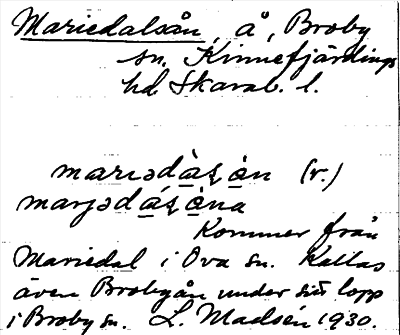 Mariedalsån, å, Broby
sn. Kinnefjärdings
hd Skarab. l.
marıədà̱ʂò̱n (r.)
marjədá̱ʂò̱na
Kommer från
Mariedal i Ova sn. Kallas
även Brobyån under sitt lopp
i Broby sn. L. Madsén 1930.